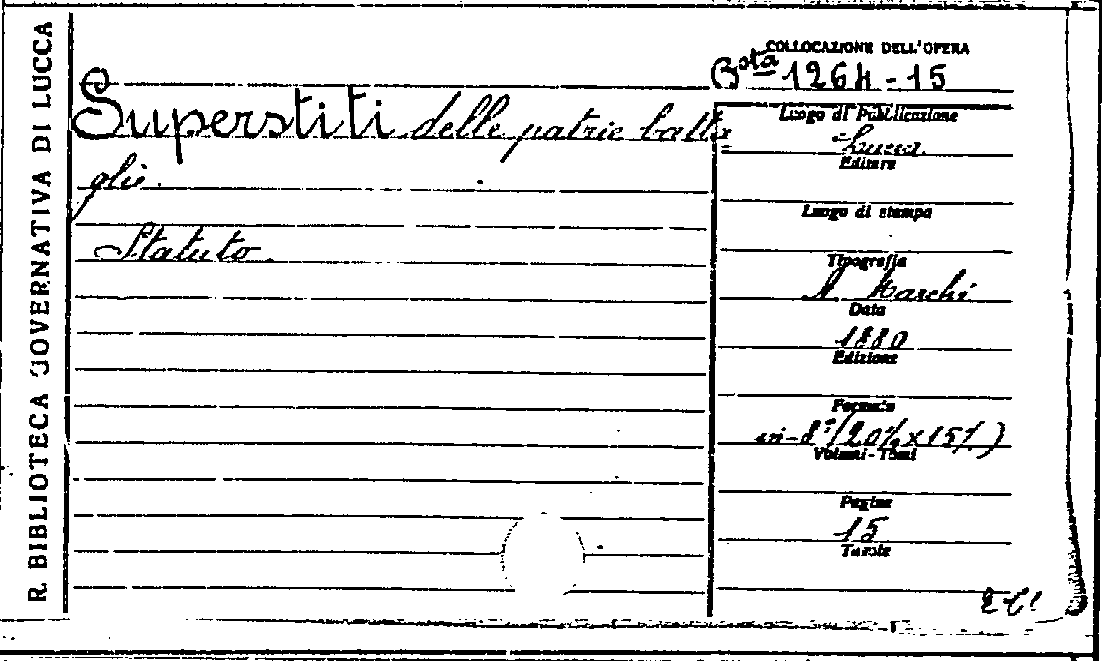 R. BIBLIOTECA GOVERNATIVA DI LUCCA
COLLOCAZIONE DELL'OPERA
Bsta 1264-15
Superstiti delle patrie batta
glie.
Statuto.
Luogo di Pubblicazione
Lucca
Editore
Luogo di stampa
Tipografia
A. Marchi
Data
1880
Edizione
Formato
in-8° (20½ x 15½)
Volumi-Tomi
Pagine
15
Tavole